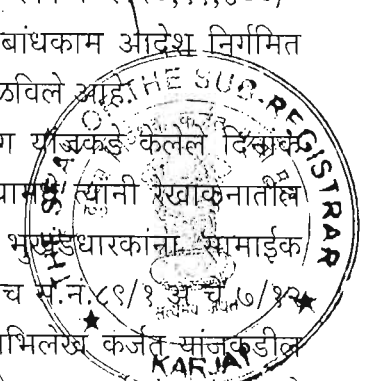 बांधकाम आदेश निर्गमित
ळविले आहे.
यांजकडे केलेले दिनांक
त्यांनी रेखांकनातील
भुखंडधारकांना सामाईक
च स.नं.८९/१ अ चे ७/१२
भिलेख कर्जत यांजकडील
THE SEAL OF THE SUB-REGISTRAR
KARJAT